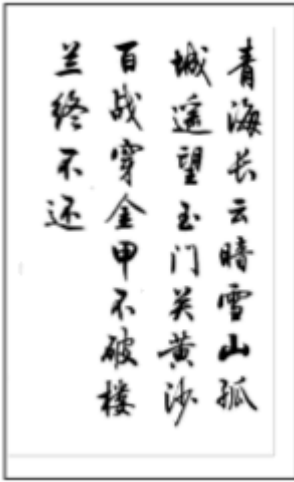 青海长云暗雪山孤
城遥望玉门关黄沙
百战穿金甲不破楼
兰终不还